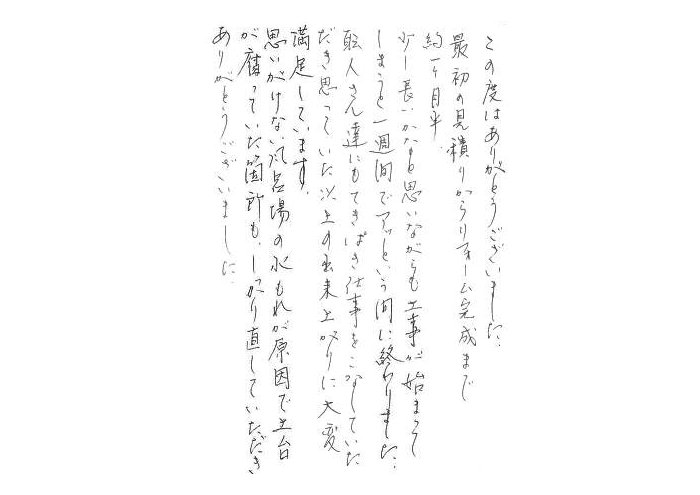 この度はありがとうございました.
最初の見積りからリフォーム完成まで
約一ヶ月半.
少し長いかなと思いながらも工事が始まって
しまうと一週間でアッという間に終わりました.
職人さん達にもてきぱき仕事をこなしていた
だき思っていた以上の出来上がりに大変
満足しています.
思いがけない風呂場の水もれが原因で土台
が腐っていた箇所も、しっかり直していただき
ありがとうございました.